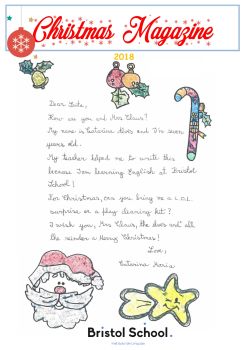 Christmas Magazine
2018
Dear Santa,
How are you and Mrs Claus?
My name is Catarina Alves and I'm seven
years old.
My teacher helped me to write this
because I'm learning English at Bristol
School!
For Christmas, can you bring me a L.O.L.
surprise or a play cleaning kit?
I wish you, Mrs Claus, the elves and all
the reindeer a Merry Christmas!
Love,
Catarina Maria
Bristol School.